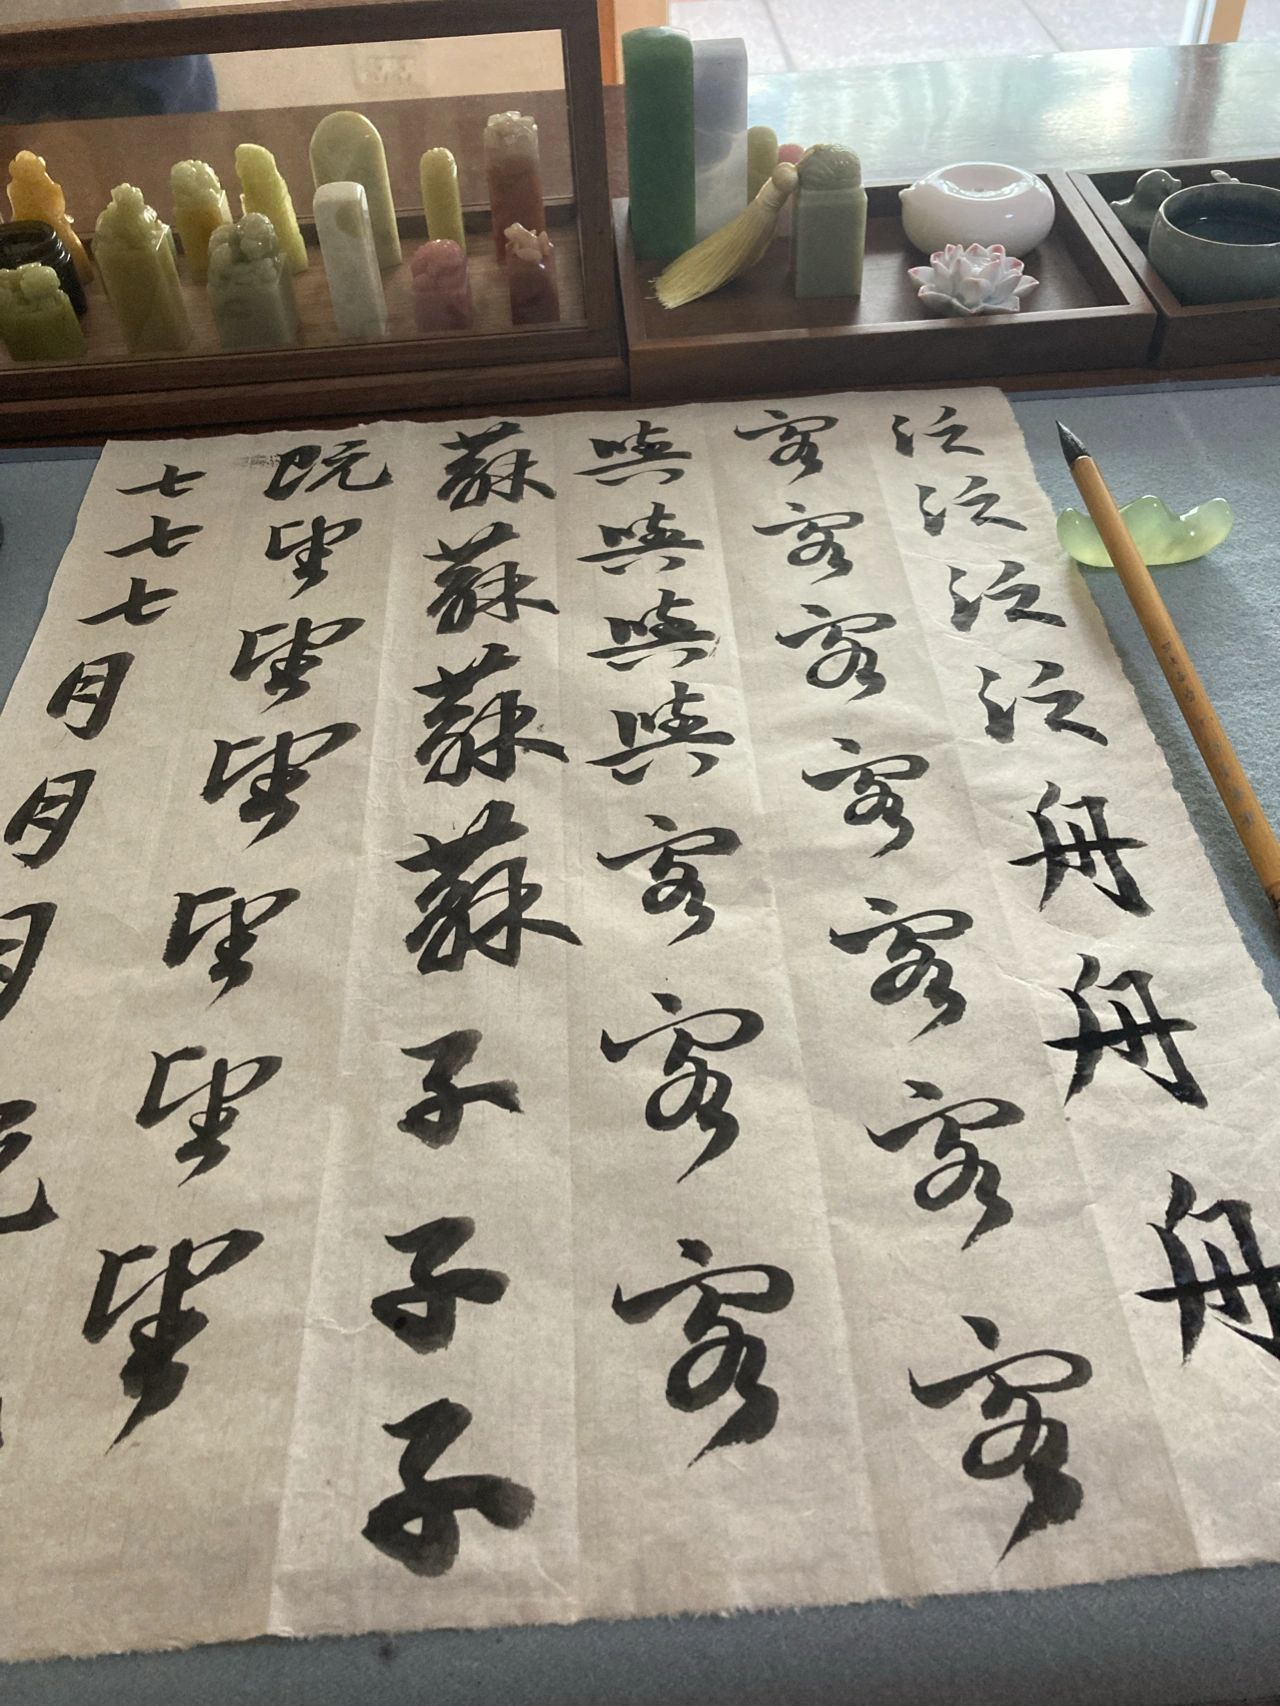 七七七月月月既
既望望望望望望
蘇蘇蘇蘇子子子
與與與與客客客
客客客客客客客
泛泛泛泛舟舟舟